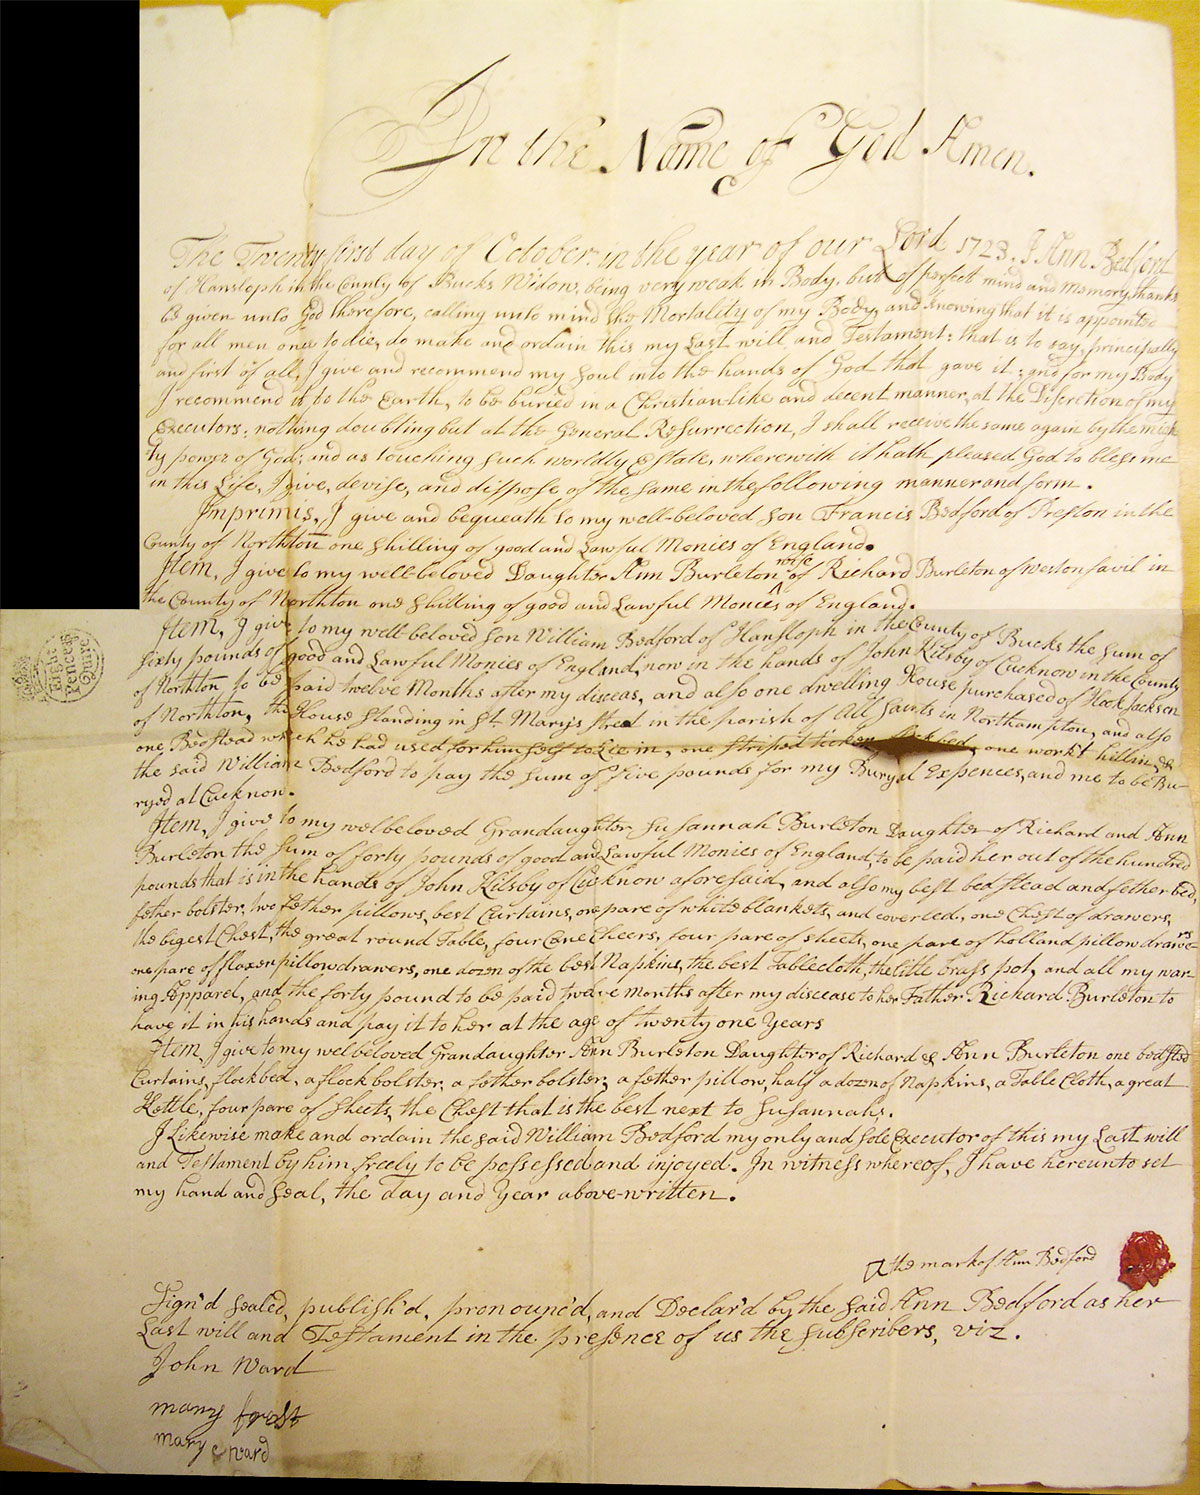 In the Name of God Amen.
The Twenty first day of October in the year of our Lord 1723. I Ann Bedford
of Hansloph in the County of Bucks Widow, being very weak in Body, but of perfect mind and Memory, thanks
be given unto God therefore, calling unto mind the Mortality of my Body, and knowing that it is appointed
for all men once to die, do make and ordain this my Last will and Testament: that is to say, principally
and first of all, I give and recommend my Soul into the hands of God that gave it: and for my Body
I recommend it to the Earth, to be buried in a Christianlike and decent manner, at the Discretion of my
Executors: nothing doubting but at the General Resurrection, I shall receive the same again by the migh
ty power of God; and as touching such worldly Estate, wherewith it hath pleased God to bless me
in this Life, I give, devise, and dispose of the same in the following manner and form.
Imprimis, I give and bequeath to my well-beloved Son Francis Bedford of Preston in the
County of Northton one Shilling of good and Lawful Monies of England.
Item, I give to my well-beloved Daughter Ann Burleton wife of Richard Burleton of Weston favil in
the County of Northton one Shilling of good and Lawful Monies of England.
Item, I give to my well-beloved Son William Bedford of Hansloph in the County of Bucks the Sum of
Sixty pounds of good and Lawful Monies of England, now in the hands of John Kilsby of Cucknow in the County
of Northton to be paid twelve Months after my diseas, and also one dwelling House purchased of Jackson
of Northton, the House Standing in St. Marys Street in the parish of All Saints in Northampton, and also
one Bedstead which he had used for him self to Lie in, one striped bed, one workt
the said William Bedford to pay the Sum of Five pounds for my Buryal Expences, and me to be Bu-
ryed at Cucknow.
Item, I give to my welbeloved Grandaughter Susannah Burleton Daughter of Richard and Ann
Burleton the Sum of forty pounds of good and Lawful Monies of England, to be paid her out of the hundred
pounds that is in the hands of John Kilsby of Cucknow aforesaid, and also my best bedstead and fether bed,
fether bolster, two fether pillows, best Curtains, one pare of white blankets, and coverled, one Chest of drawers,
the bigest Chest, the great round Table, four Cane Cheers, four pare of sheets, one pare of holland pillow drawers
one pare of flaxen pillowdrawers, one dozen of the best Napkins, the best Tablecloth, the little brass pot, and all my war-
ing Apparel, and the forty pound to be paid twelve months after my disease to her Father Richard Burleton to
have it in his hands and pay it to her at the age of twenty one Years
Item, I give to my welbeloved Grandaughter Ann Burleton Daughter of Richard & Ann Burleton one bedsted
Curtains, flockbed, a flock bolster, a fether bolster, a fether pillow, half a dozen of Napkins, a Table Cloth, a great
Kettle, four pare of Sheets, the Chest that is the best next to Susannahs.
I Likewise make and ordain the said William Bedford my only and Sole Executor of this my Last will
and Testament by him freely to be possessed and injoyed. In witness whereof, I have hereunto set
my hand and Seal, the day and Year above-written.
the mark of Ann Bedford
Sign'd Sealed, publish'd, pronounc'd, and Declar'd by the said Ann Bedford as her
Last will and Testament in the presence of us the Subscribers, viz.
John Ward
mary frost
mary ward